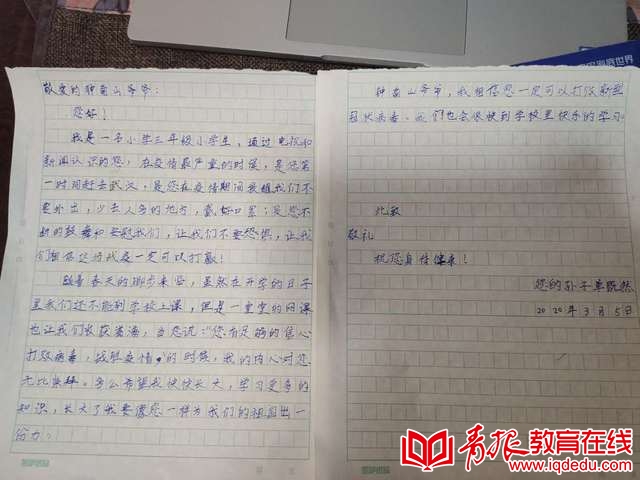 敬爱的钟南山爷爷：
您好！
我是一名小学三年级小学生，通过电视和
新闻认识的您，在疫情最严重的时候，是您第
一时间赶去武汉，是您在疫情期间提醒我们不
要外出，少去人多的地方，戴好口罩；是您不
断的鼓舞和安慰我们，让我们不要恐惧，让我
们相信这场战疫一定可以打赢！
随着春天的脚步来临，虽然在开学的日子
里我们还不能到学校上课，但是一堂堂的网课
也让我们收获满满，当您说："您有足够的信心
打败病毒，战胜疫情"的时候，我的内心对您
无比崇拜。多么希望我快快长大，学习更多的
知识，长大了我要像您一样为我们的祖国出一
份力。
钟南山爷爷，我相信您一定可以打败新型
冠状病毒。我们也会很快到学校里快乐的学习。
此致
敬礼
祝您身体健康！
您的孙子
2020年3月5日
青报教育在线
www.iqdedu.com